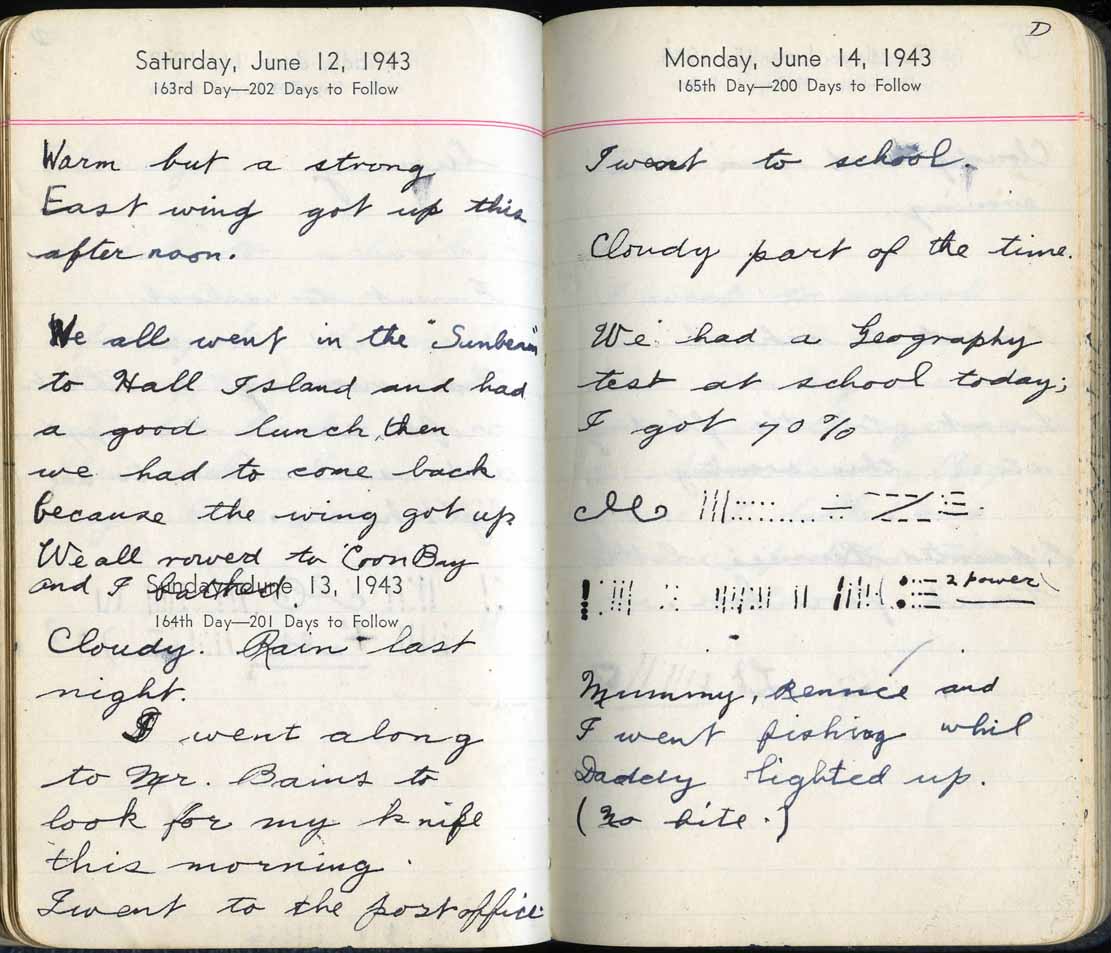 Saturday, June 12, 1943
163rd Day—202 Days to Follow
Warm but a strong
East wing got up this
after noon.
We all went in the "Sunbeam"
to Hall Island and had
a good lunch, then
we had to come back
because the wing got up
We all rowed to Coon Bay
and I bathed.
Sunday, June 13, 1943
164th Day—201 Days to Follow
Cloudy. Rain last
night.
I went along
to Mr. Bains to
look for my knife
this morning.
I went to the post office
D
Monday, June 14, 1943
165th Day—200 Days to Follow
I went to school.
Cloudy part of the time.
We had a Geography
test at school today;
I got 70%
2 power
Mummy, Rennie and
I went fishing whil
Daddy lighted up.
(No bite.)